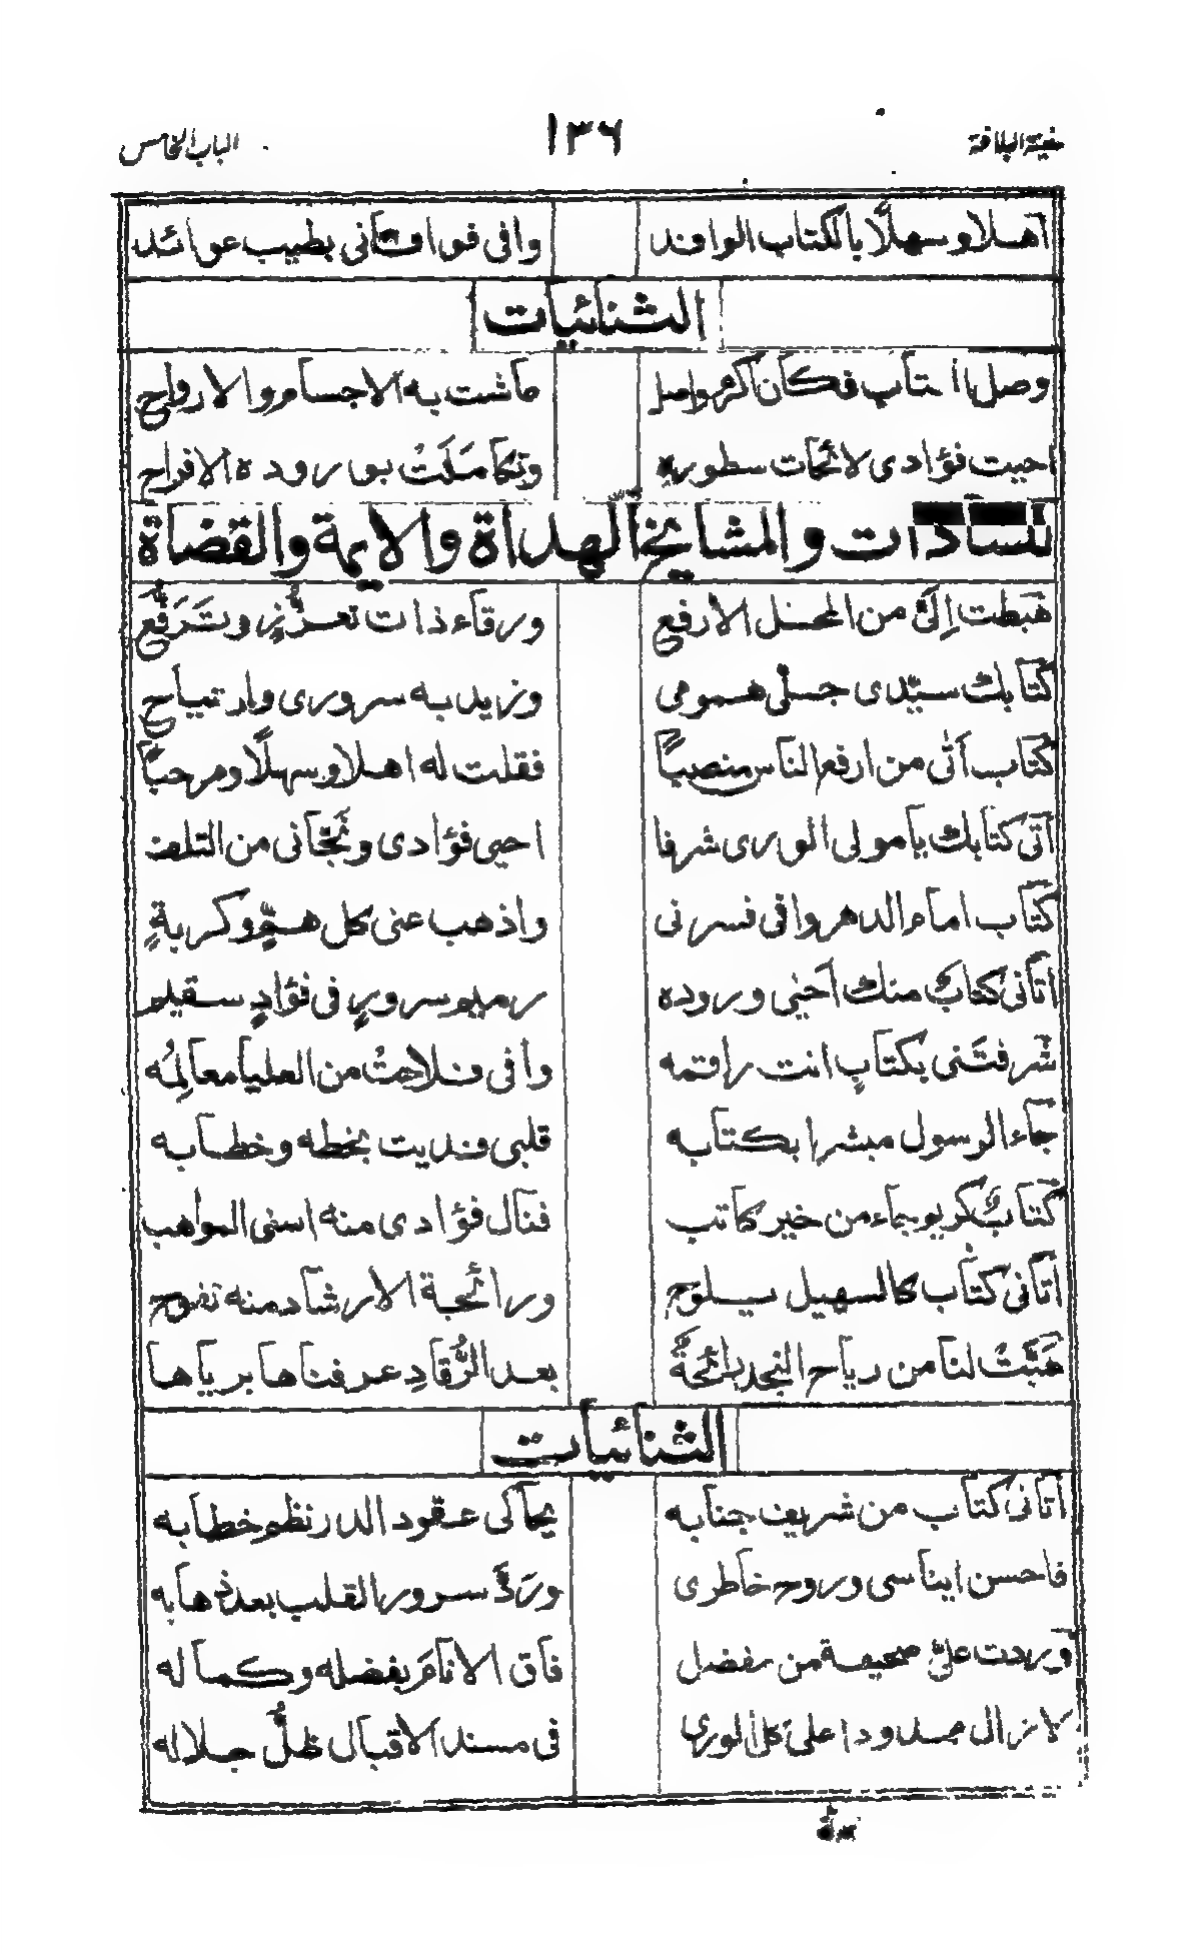 سفينة البلاغة ١٣٦ الباب الخامس
اهلا وسهلًا بالكتاب الوافد وافى فوافانى بطيب عوائد
الثنائيات
وصل الكتاب فكان اكرم واصل عاشت به الاجسام والارواح
احييت فؤادى لائحات سطوره وتكاملت بوروده الافراح
للسادات والمشايخ الهداة والايمة والقضاة
هَبَطت اِلَىَّ من المحل الارفع ورقاء ذات تعزُّزٍ وتَرَفُّعِ
كتابك سيّدى جلى همومى وزيد به سرورى وارتياح
كتاب أتى من ارفع الناس منصبًا فقلت له اهلا وسهلًا ومرحبًا
أتى كتابك يا مولى الورى شرفا احيى فؤادى ونَجّانى من التلف
كتاب امام الدهر وافى فسرنى واذهب عنى كل همٍّ وكربةٍ
اتانى كتابٌ منك أحيى وروده رميم سرورٍ فى فؤادٍ سقيم
شرفتَنى بكتابٍ انت راقمه وافى فلاحتْ من العليا معالمُه
جاء الرسول مبشرا بكتابه قلبى فديت بخطه وخطابه
كتابٌ كريم جاء من خير كاتب فنال فؤادى منه اسنى المواهب
أتانى كتاب كالسهيل يلوح ورائحة الارشاد منه تفوح
هَبَّتْ لنا من رياح النجد رائحةٌ بعد الرُّقادِ عرفناها برياها
الثنائيات
أتانى كتاب من شريف جنابه يحاكى عقود الدر نظم خطابه
فاحسن ايناسى وروح خاطرى ورَدَّ سرور القلب بعد ذهابه
وردت علىَّ صحيفة من مفضل فاق الانامَ بفضله وكماله
لا زال ممدودا على كل الورى فى مسند الاقبال ظلُّ جلاله